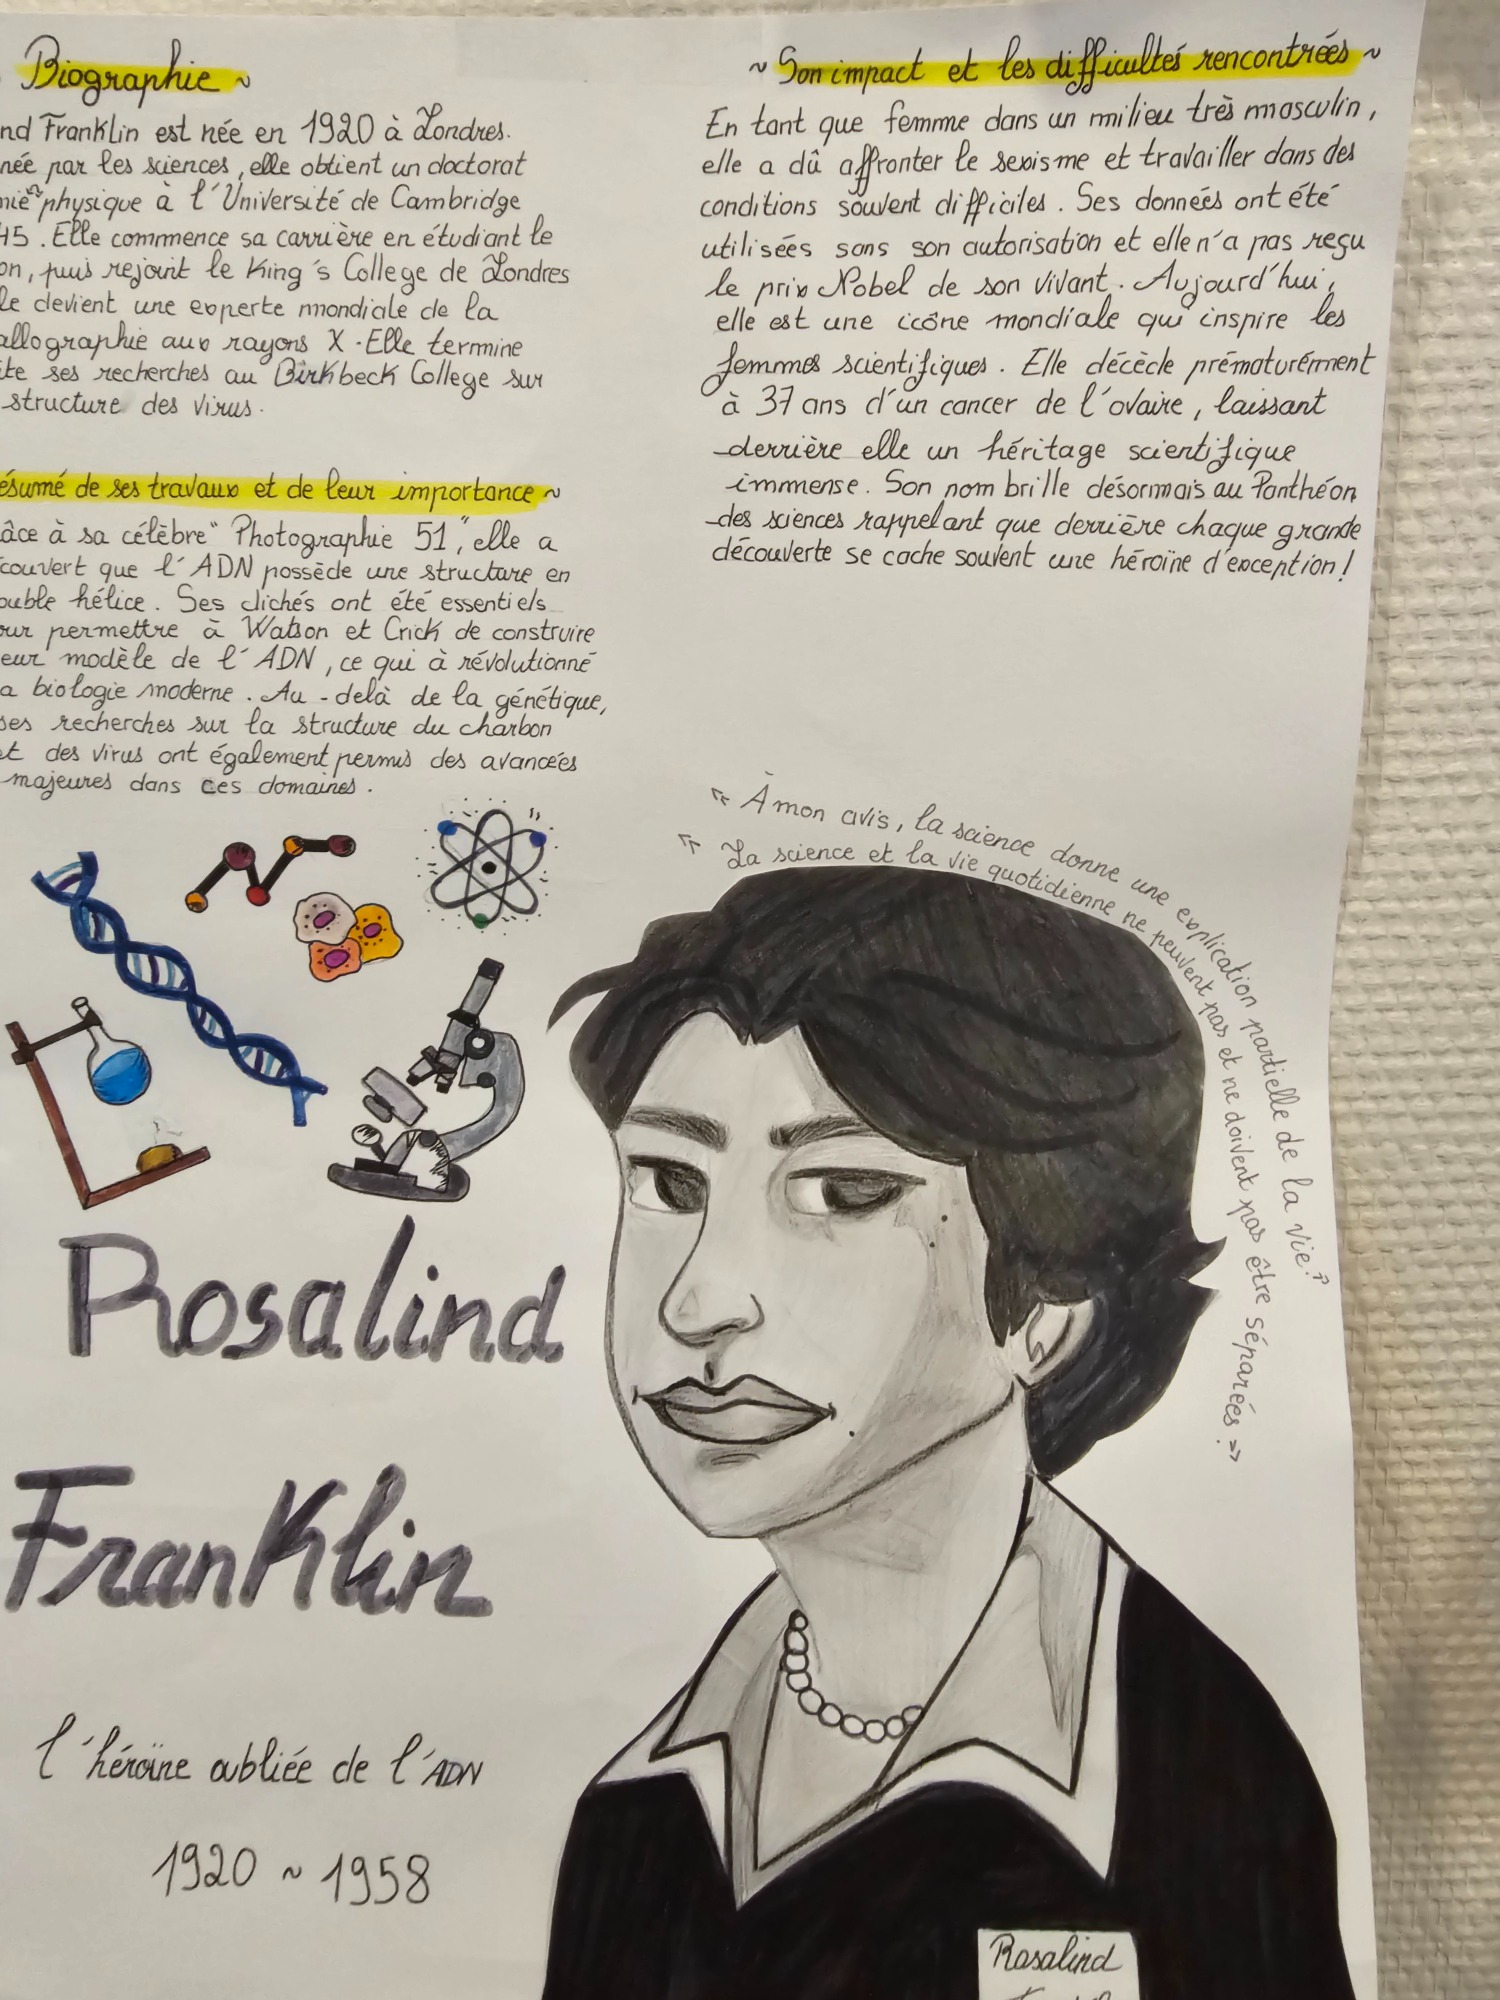 Biographie ~
nd Franklin est née en 1920 à Londres.
née par les sciences, elle obtient un doctorat
mie physique à l'Université de Cambridge
45. Elle commence sa carrière en étudiant le
on, puis rejoint le King's College de Londres
le devient une experte mondiale de la
allographie aux rayons X. Elle termine
ite ses recherches au Birkbeck College sur
structure des virus.
ésumé de ses travaux et de leur importance ~
âce à sa célèbre "Photographie 51", elle a
couvert que l'ADN possède une structure en
ouble hélice. Ses clichés ont été essentiels
our permettre à Watson et Crick de construire
eur modèle de l'ADN, ce qui à révolutionné
a biologie moderne. Au-delà de la génétique,
ses recherches sur la structure du charbon
et des virus ont également permis des avancées
majeures dans ces domaines.
~ Son impact et les difficultés rencontrées ~
En tant que femme dans un milieu très masculin,
elle a dû affronter le sexisme et travailler dans des
conditions souvent difficiles. Ses données ont été
utilisées sans son autorisation et elle n'a pas reçu
le prix Nobel de son vivant. Aujourd'hui,
elle est une icône mondiale qui inspire les
femmes scientifiques. Elle décède prématurément
à 37 ans d'un cancer de l'ovaire, laissant
derrière elle un héritage scientifique
immense. Son nom brille désormais au Panthéon
des sciences rappelant que derrière chaque grande
découverte se cache souvent une héroïne d'exception!
« À mon avis, la science donne une explication partielle de la vie.»
« La science et la vie quotidienne ne peuvent pas et ne doivent pas être séparées.»
Rosalind
Franklin
l'héroïne oubliée de l'ADN
1920 ~ 1958
Rosalind